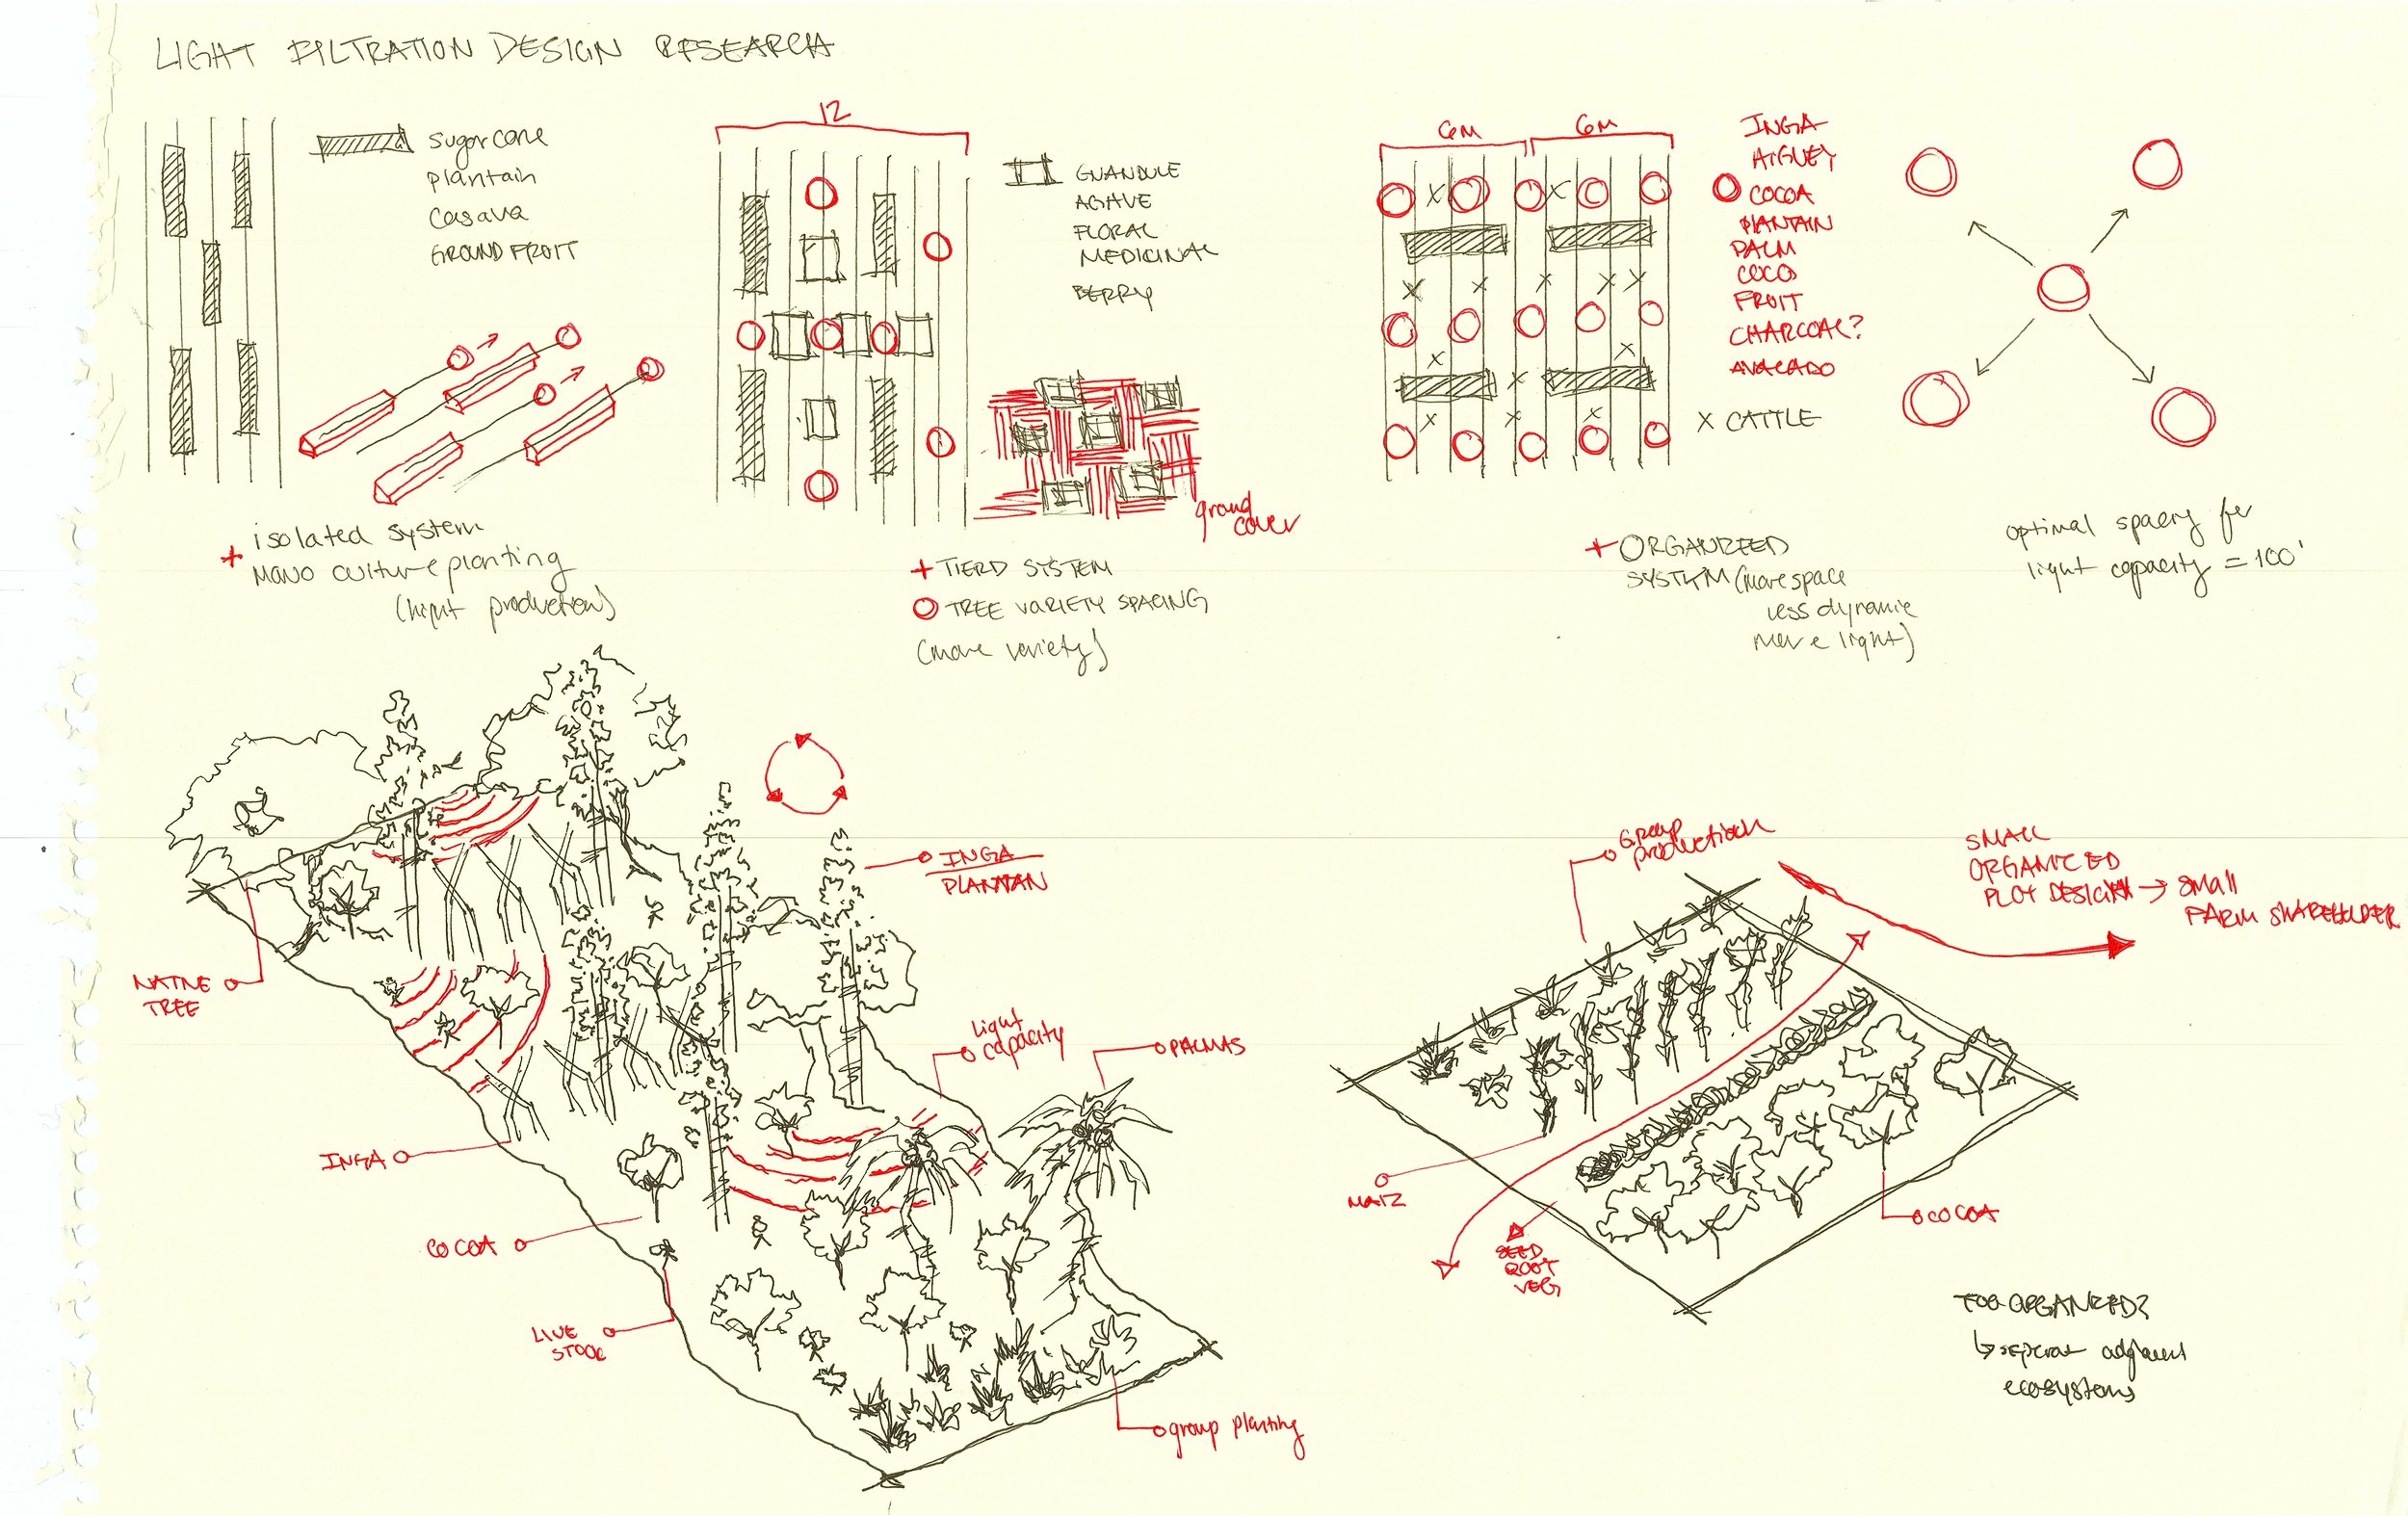 LIGHT FILTRATION DESIGN RESEARCH
sugar cane
plantain
casava
GROUND FRUIT
+ isolated system
MONO culture planting
(light production)
12
GUANDULE
AGAVE
FLORAL
MEDICINAL
BERRY
ground
cover
+ TIERD SYSTEM
TREE VARIETY SPACING
(more variety)
6M 6M
INGA
HIGUEY
COCOA
PLANTAIN
PALM
COCO
FRUIT
CHARCOAL?
AVACADO
X CATTLE
+ ORGANIZED
SYSTEM (more space
less dynamic
more light)
optimal spacing for
light capacity = 100'
NATIVE
TREE
INGA
PLANTAN
light
capacity
PALMAS
INGA
COCOA
LIVE
STOCK
group planting
Group
production
SMALL
ORGANIZED
PLOT DESIGN → small
FARM SHAREHOLDER
MAIZ
SEED
ROOT
VEG
COCOA
TOO ORGANIZED?
↳ seperat adjacent
ecosystems